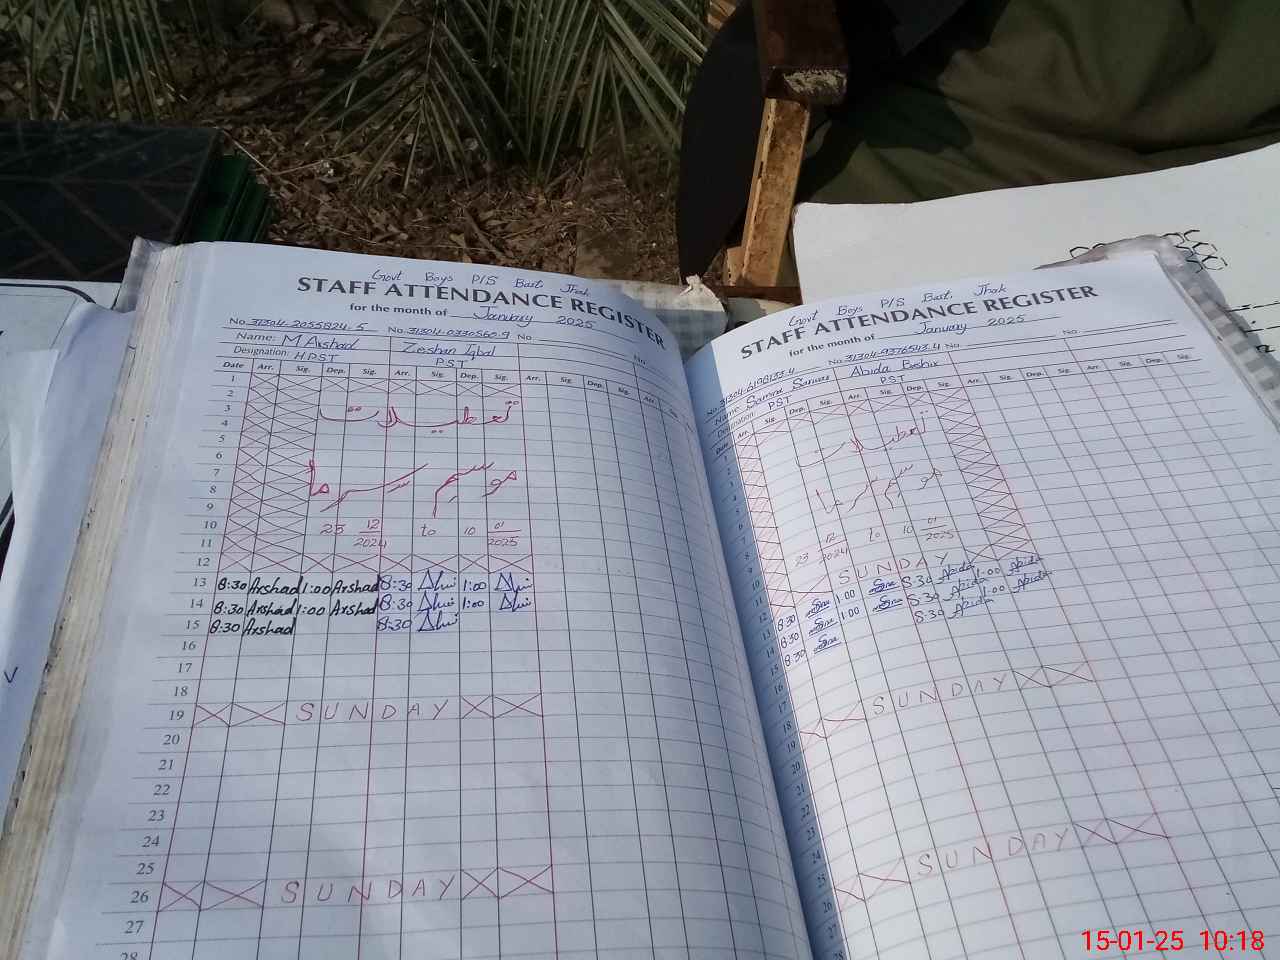 Govt Boys P/S Basti Jhak
STAFF ATTENDANCE REGISTER
for the month of January 2025
No. 31304-2055824-5 No. 31304-0330560-9 No No
Name: M Arshad Zeshan Iqbal
Designation: H.PST PST
Date Arr. Sig. Dep. Sig. Arr. Sig. Dep. Sig. Arr. Sig. Dep. Sig. Arr. Sig.
1
2
3 تعطیلات
4
5
6
7 موسم سرما
8
9
10 23 12/2024 to 10 01/2025
11
12
13 8:30 Arshad 1:00 Arshad 8:30 1:00
14 8:30 Arshad 1:00 Arshad 8:30 1:00
15 8:30 Arshad 8:30
16
17
18
19 SUNDAY
20
21
22
23
24
25
26 SUNDAY
27
28
Govt Boys P/S Basti Jhak
STAFF ATTENDANCE REGISTER
for the month of January 2025
No. No. 31304-9376543-4 No. No
Name: Abida Bashir
Designation: PST PST
Date Arr. Sig. Dep. Sig. Arr. Sig. Dep. Sig. Arr. Sig. Dep. Sig. Arr. Sig. Dep. Sig.
1
2 تعطیلات
3
4
5 موسم سرما
6
7
8
9 23 12/2024 to 10 01/2025
10
11
12 SUNDAY
13 8:30 1:00 8:30 Abida 1:00 Abida
14 8:30 1:00 8:30 Abida 1:00 Abida
15 8:30 8:30 Abida
16
17
18
19 SUNDAY
20
21
22
23
24
25
26 SUNDAY
27
28
15-01-25 10:18